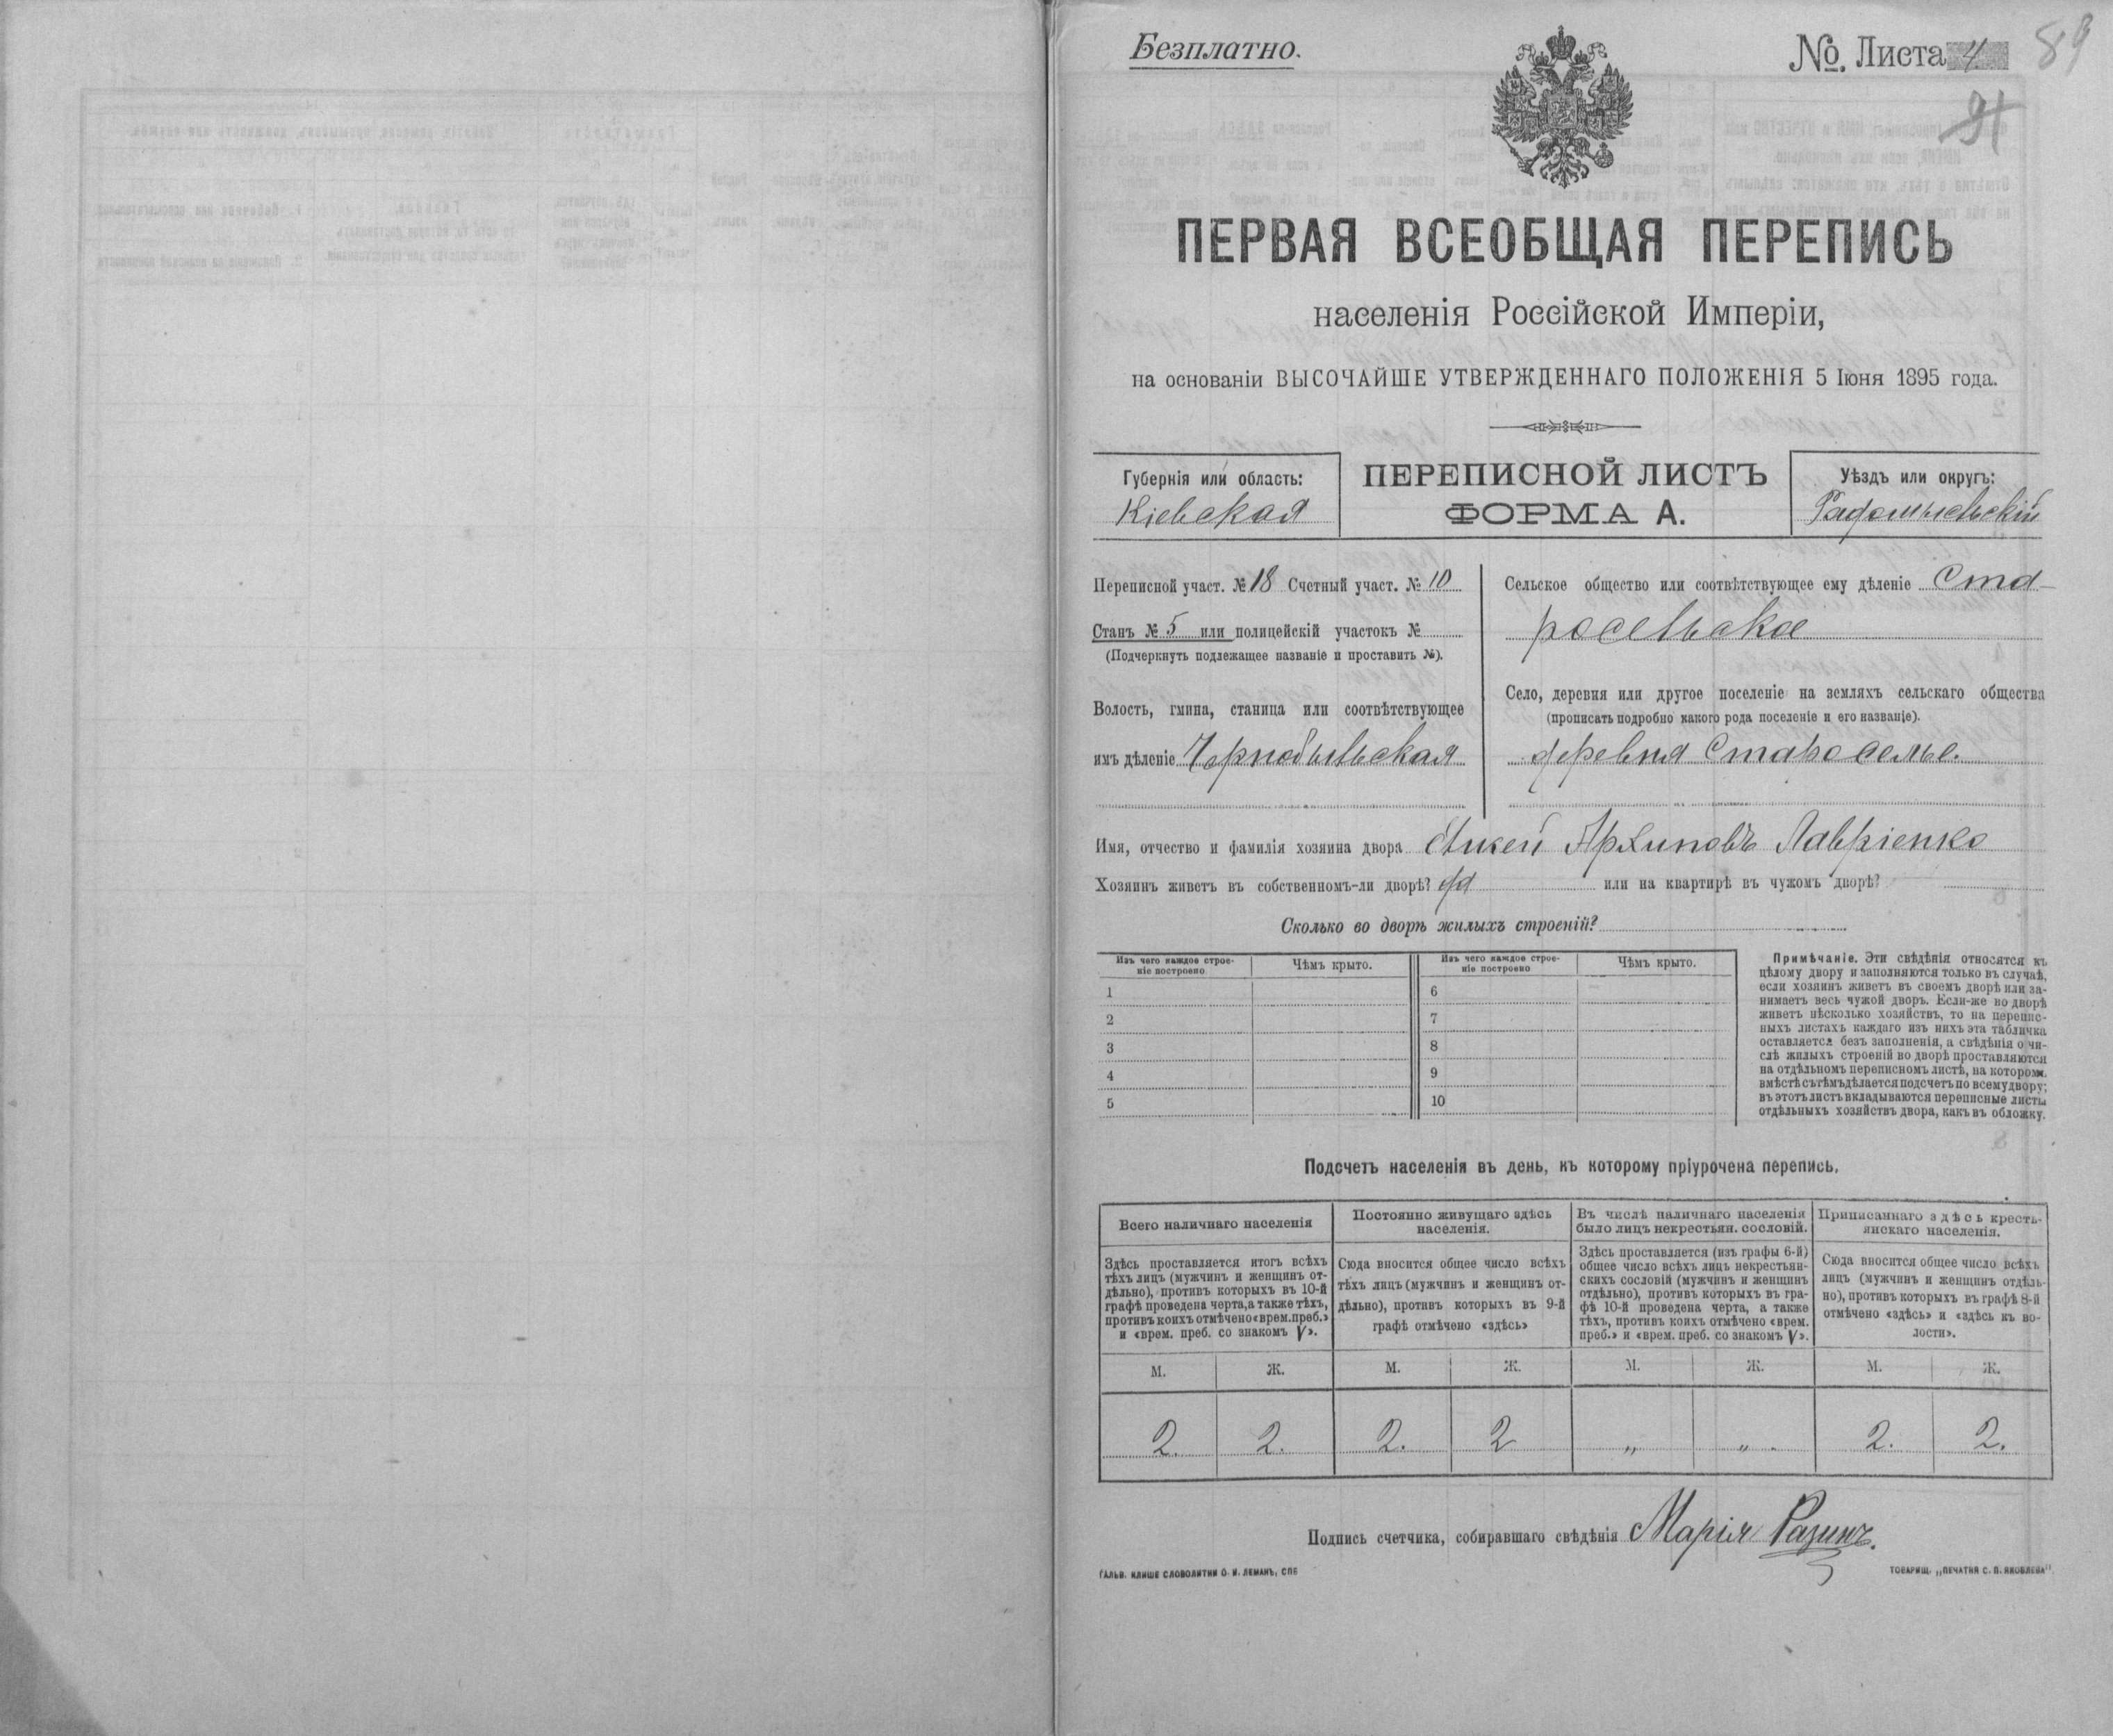 Безплатно.
№. Листа 4
89
91
ПЕРВАЯ ВСЕОБЩАЯ ПЕРЕПИСЬ
населенія Россійской Имперіи,
на основаніи ВЫСОЧАЙШЕ УТВЕРЖДЕННАГО ПОЛОЖЕНІЯ 5 Іюня 1895 года.
Губернія или область:
Кіевская
ПЕРЕПИСНОЙ ЛИСТЪ
ФОРМА А.
Уѣздъ или округъ:
Радомысльскій
Переписной участ. № 18 Счетный участ. № 10
Станъ № 5 или полицейскій участокъ №
(Подчеркнуть подлежащее названіе и проставить №).
Волость, гмина, станица или соотвѣтствующее
имъ дѣленіе Чернобыльская
Сельское общество или соотвѣтствующее ему дѣленіе Ста-
росельское
Село, деревня или другое поселеніе на земляхъ сельскаго общества
(прописать подробно какого рода поселеніе и его названіе).
деревня Староселье.
Имя, отчество и фамилія хозяина двора Архиповъ Лавріенко
Хозяинъ живетъ въ собственномъ-ли дворѣ? да или на квартирѣ въ чужомъ дворѣ?
Сколько во дворѣ жилыхъ строеній?
Изъ чего каждое строе-
ніе построено
Чѣмъ крыто.
Изъ чего каждое строе-
ніе построено
Чѣмъ крыто.
1
2
3
4
5
6
7
8
9
10
Примѣчаніе. Эти свѣдѣнія относятся къ
цѣлому двору и заполняются только въ случаѣ,
если хозяинъ живетъ въ своемъ дворѣ или за-
нимаетъ весь чужой дворъ. Если-же во дворѣ
живетъ нѣсколько хозяйствъ, то на перепис-
ныхъ листахъ каждаго изъ нихъ эта табличка
оставляется безъ заполненія, а свѣдѣнія о чи-
слѣ жилыхъ строеній во дворѣ проставляются
на отдѣльномъ переписномъ листѣ, на которомъ
вмѣстѣ съ тѣмъ дѣлается подсчетъ по всему двору;
въ этотъ листъ вкладываются переписные листы
отдѣльныхъ хозяйствъ двора, какъ въ обложку.
Подсчетъ населенія въ день, къ которому пріурочена перепись.
Всего наличнаго населенія
Здѣсь проставляется итогъ всѣхъ
тѣхъ лицъ (мужчинъ и женщинъ от-
дѣльно), противъ которыхъ въ 10-й
графѣ проведена черта, а также тѣхъ,
противъ коихъ отмѣчено «врем. преб.»
и «врем. преб. со знакомъ V».
Постоянно живущаго здѣсь
населенія.
Сюда вносится общее число всѣхъ
тѣхъ лицъ (мужчинъ и женщинъ от-
дѣльно), противъ которыхъ въ 9-й
графѣ отмѣчено «здѣсь»
Въ числѣ наличнаго населенія
было лицъ некрестьян. сословій.
Здѣсь проставляется (изъ графы 6-й)
общее число всѣхъ лицъ некрестьян-
скихъ сословій (мужчинъ и женщинъ
отдѣльно), противъ которыхъ въ гра-
фѣ 10-й проведена черта, а также
тѣхъ, противъ коихъ отмѣчено «врем.
преб.» и «врем. преб. со знакомъ V».
Приписаннаго здѣсь кресть-
янскаго населенія.
Сюда вносится общее число всѣхъ
лицъ (мужчинъ и женщинъ отдѣль-
но), противъ которыхъ въ графѣ 8-й
отмѣчено «здѣсь» и «здѣсь къ во-
лости».
М. Ж. М. Ж. М. Ж. М. Ж.
2. 2. 2. 2 „ „ 2. 2.
Подпись счетчика, собиравшаго свѣдѣнія Марія Разинъ.
ГАЛЬВ. КЛИШЕ СЛОВОЛИТНИ О. И. ЛЕМАНЪ, СПБ
ТОВАРИЩ. „ПЕЧАТНЯ С. П. ЯКОВЛЕВА"